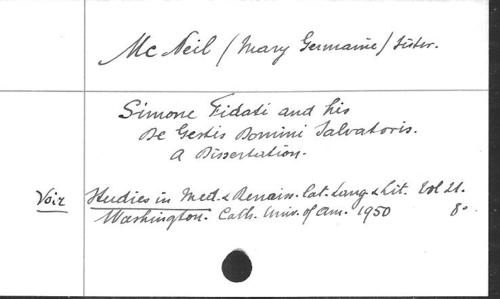 Mc Neil (Mary Germaine) Sister.
Simone Fidati and his
De Gestis Domini Salvatoris.
A Dissertation.
Voir Studies in Med. & Renaiss. Lat. Lang. & Lit. Vol 21.
Washington. Cath. Univ. of Am. 1950 8°